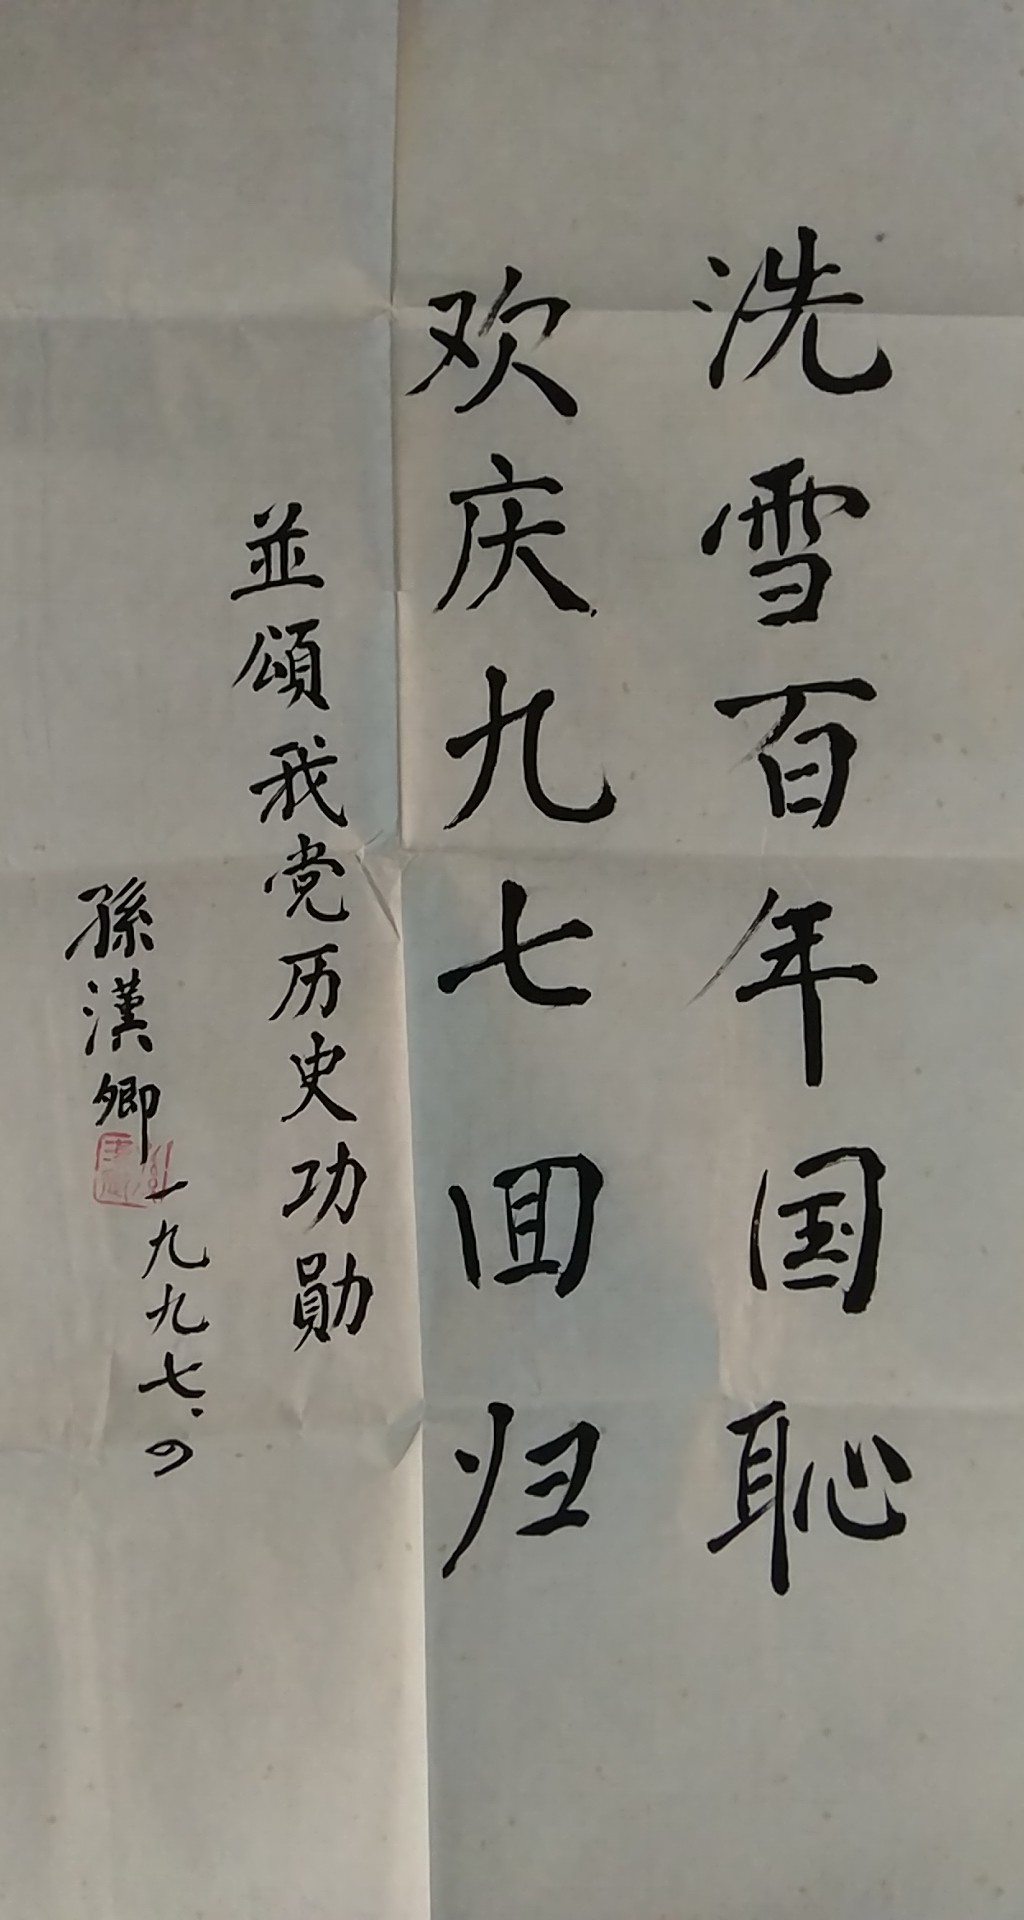 洗雪百年国恥
欢庆九七回归
並頌我党历史功勛
孫漢卿
一九九七、四